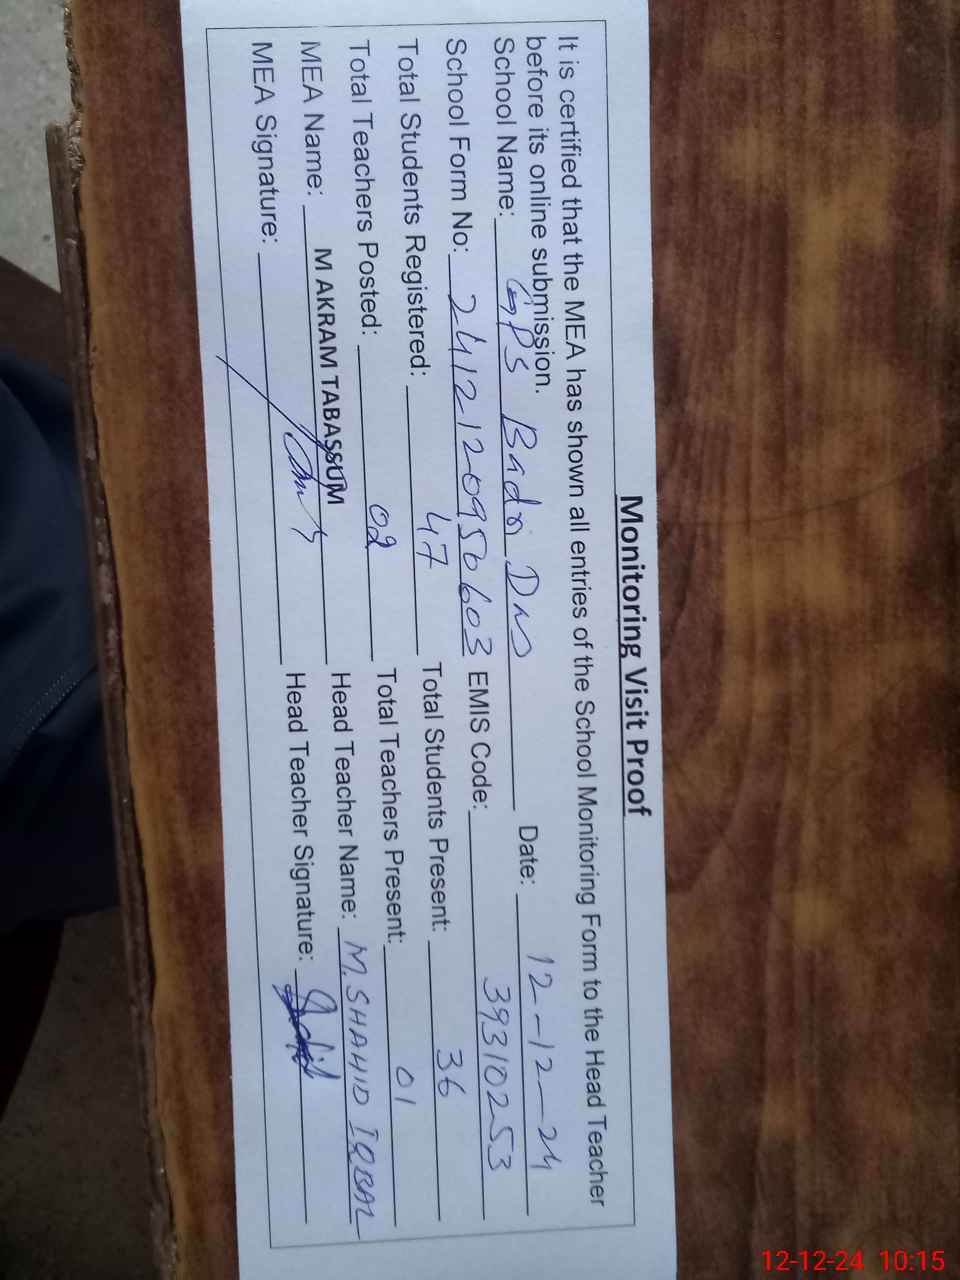 Monitoring Visit Proof
It is certified that the MEA has shown all entries of the School Monitoring Form to the Head Teacher
before its online submission.
School Name: GPS Badr Din Date: 12-12-24
School Form No: 2412120950603 EMIS Code: 39310253
Total Students Registered: 47 Total Students Present: 36
Total Teachers Posted: 02 Total Teachers Present: 01
MEA Name: M AKRAM TABASSUM Head Teacher Name: M. SHAHID IQBAL
MEA Signature: Head Teacher Signature:
12-12-24 10:15